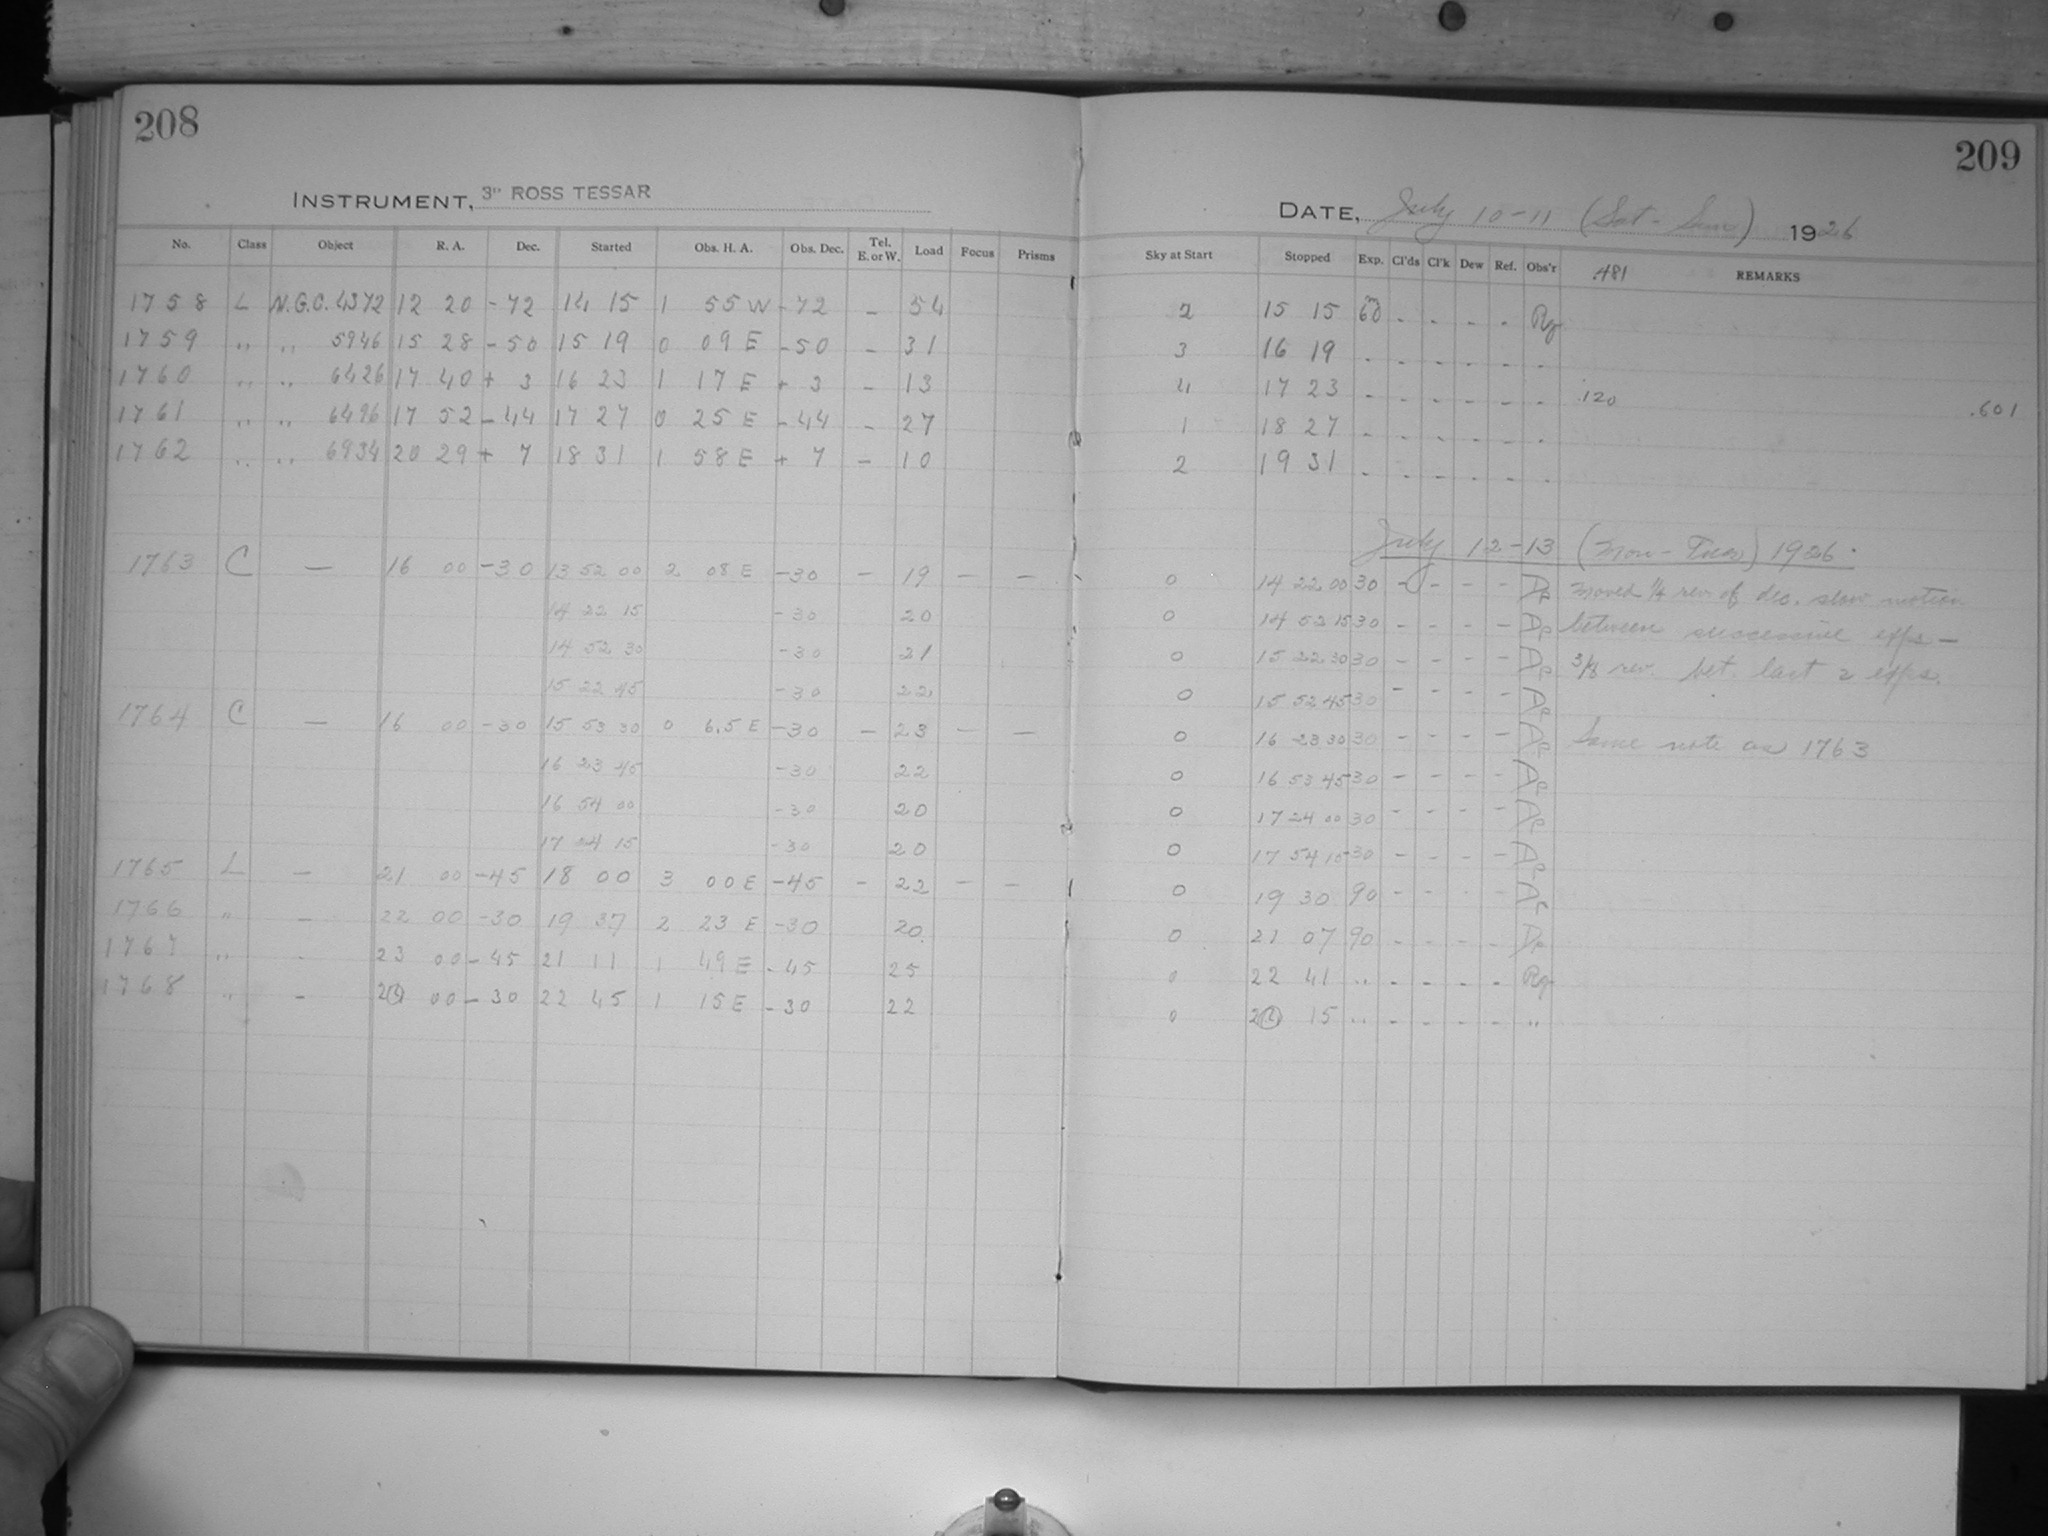 208
INSTRUMENT, 3" ROSS TESSAR
No. Class Object R. A. Dec. Started Obs. H. A. Obs. Dec. Tel. E. or W. Load Focus Prisms
1758 L N.G.C. 4372 12 20 -72 14 15 1 55 W -72 - 54
1759 " " 5946 15 28 -50 15 19 0 09 E -50 - 31
1760 " " 6426 17 40 + 3 16 23 1 17 E + 3 - 13
1761 " " 6496 17 52 -44 17 27 0 25 E -44 - 27
1762 " " 6934 20 29 + 7 18 31 1 58 E + 7 - 10
1763 C — 16 00 -30 13 52 00 2 08 E -30 — 19 — —
14 22 15 -30 20
14 52 30 -30 21
15 22 45 -30 22
1764 C — 16 00 -30 15 53 30 0 6.5 E -30 — 23 — —
16 23 45 -30 22
16 54 00 -30 20
17 24 15 -30 20
1765 L — 21 00 -45 18 00 3 00 E -45 - 22 — —
1766 " — 22 00 -30 19 37 2 23 E -30 20
1767 " - 23 00 -45 21 11 1 49 E -45 25
1768 " - 00 -30 22 45 1 15 E -30 22
209
DATE, July 10-11 (Sat-Sun) 1926
Sky at Start Stopped Exp. Cl'ds Cl'k Dew Ref. Obs'r .481 REMARKS
2 15 15 60m - - - - Rg
3 16 19 - - - - - -
4 17 23 - - - - - - .120 .601
1 18 27 - - - - - -
2 19 31 - - - - - -
July 12-13 (Mon-Tues) 1926.
0 14 22 00 30 - - - - Dp Moved 1/4 rev of dec. slow motion
0 14 52 15 30 - - - - Dp between successive exps —
0 15 22 30 30 - - - - Dp 3/8 rev. bet. last 2 exps.
0 15 52 45 30 - - - - Dp
0 16 23 30 30 - - - - Dp Same note as 1763
0 16 53 45 30 - - - - Dp
0 17 24 00 30 - - - - Dp
0 17 54 15 30 - - - - Dp
0 19 30 90 - - - - Dp
0 21 07 90 - - - - Dp
0 22 41 " - - - - Rg
0 15 " - - - - "